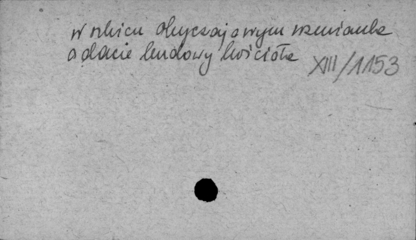 w szkicu obyczajowym wzmianka
o dacie budowy kościoła
XIII/1153